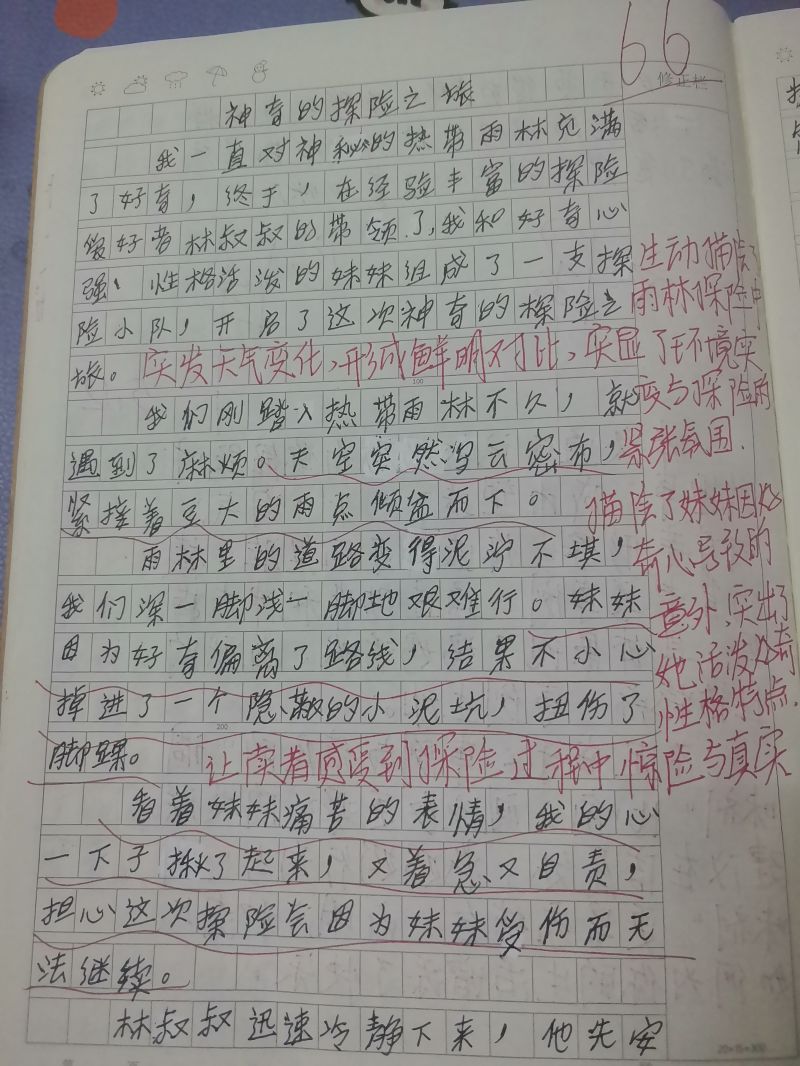 66
修正栏
神奇的探险之旅
我一直对神秘的热带雨林充满
了好奇，终于，在经验丰富的探险
爱好者林叔叔的带领了，我和好奇心
强、性格活泼的妹妹组成了一支探
险小队，开启了这次神奇的探险之
旅。
突发天气变化，形成鲜明对比，突显了环境突
变与探险的
紧张氛围.
生动描绘了
雨林探险中
100
我们刚踏入热带雨林不久，就
遇到了麻烦。天空突然乌云密布，
紧接着豆大的雨点倾盆而下。
雨林里的道路变得泥泞不堪，
我们深一脚浅一脚地艰难行。妹妹
因为好奇偏离了路线，结果不小心
掉进了一个隐蔽的小泥坑，扭伤了
200
脚踝。
描绘了妹妹因好
奇心导致的
意外，突出了
她活泼好奇
性格特点.
让读者感受到探险过程中惊险与真实
看着妹妹痛苦的表情，我的心
一下子揪了起来，又着急又自责，
担心这次探险会因为妹妹受伤而无
法继续。
林叔叔迅速冷静下来，他先安
20×15=300
第 页